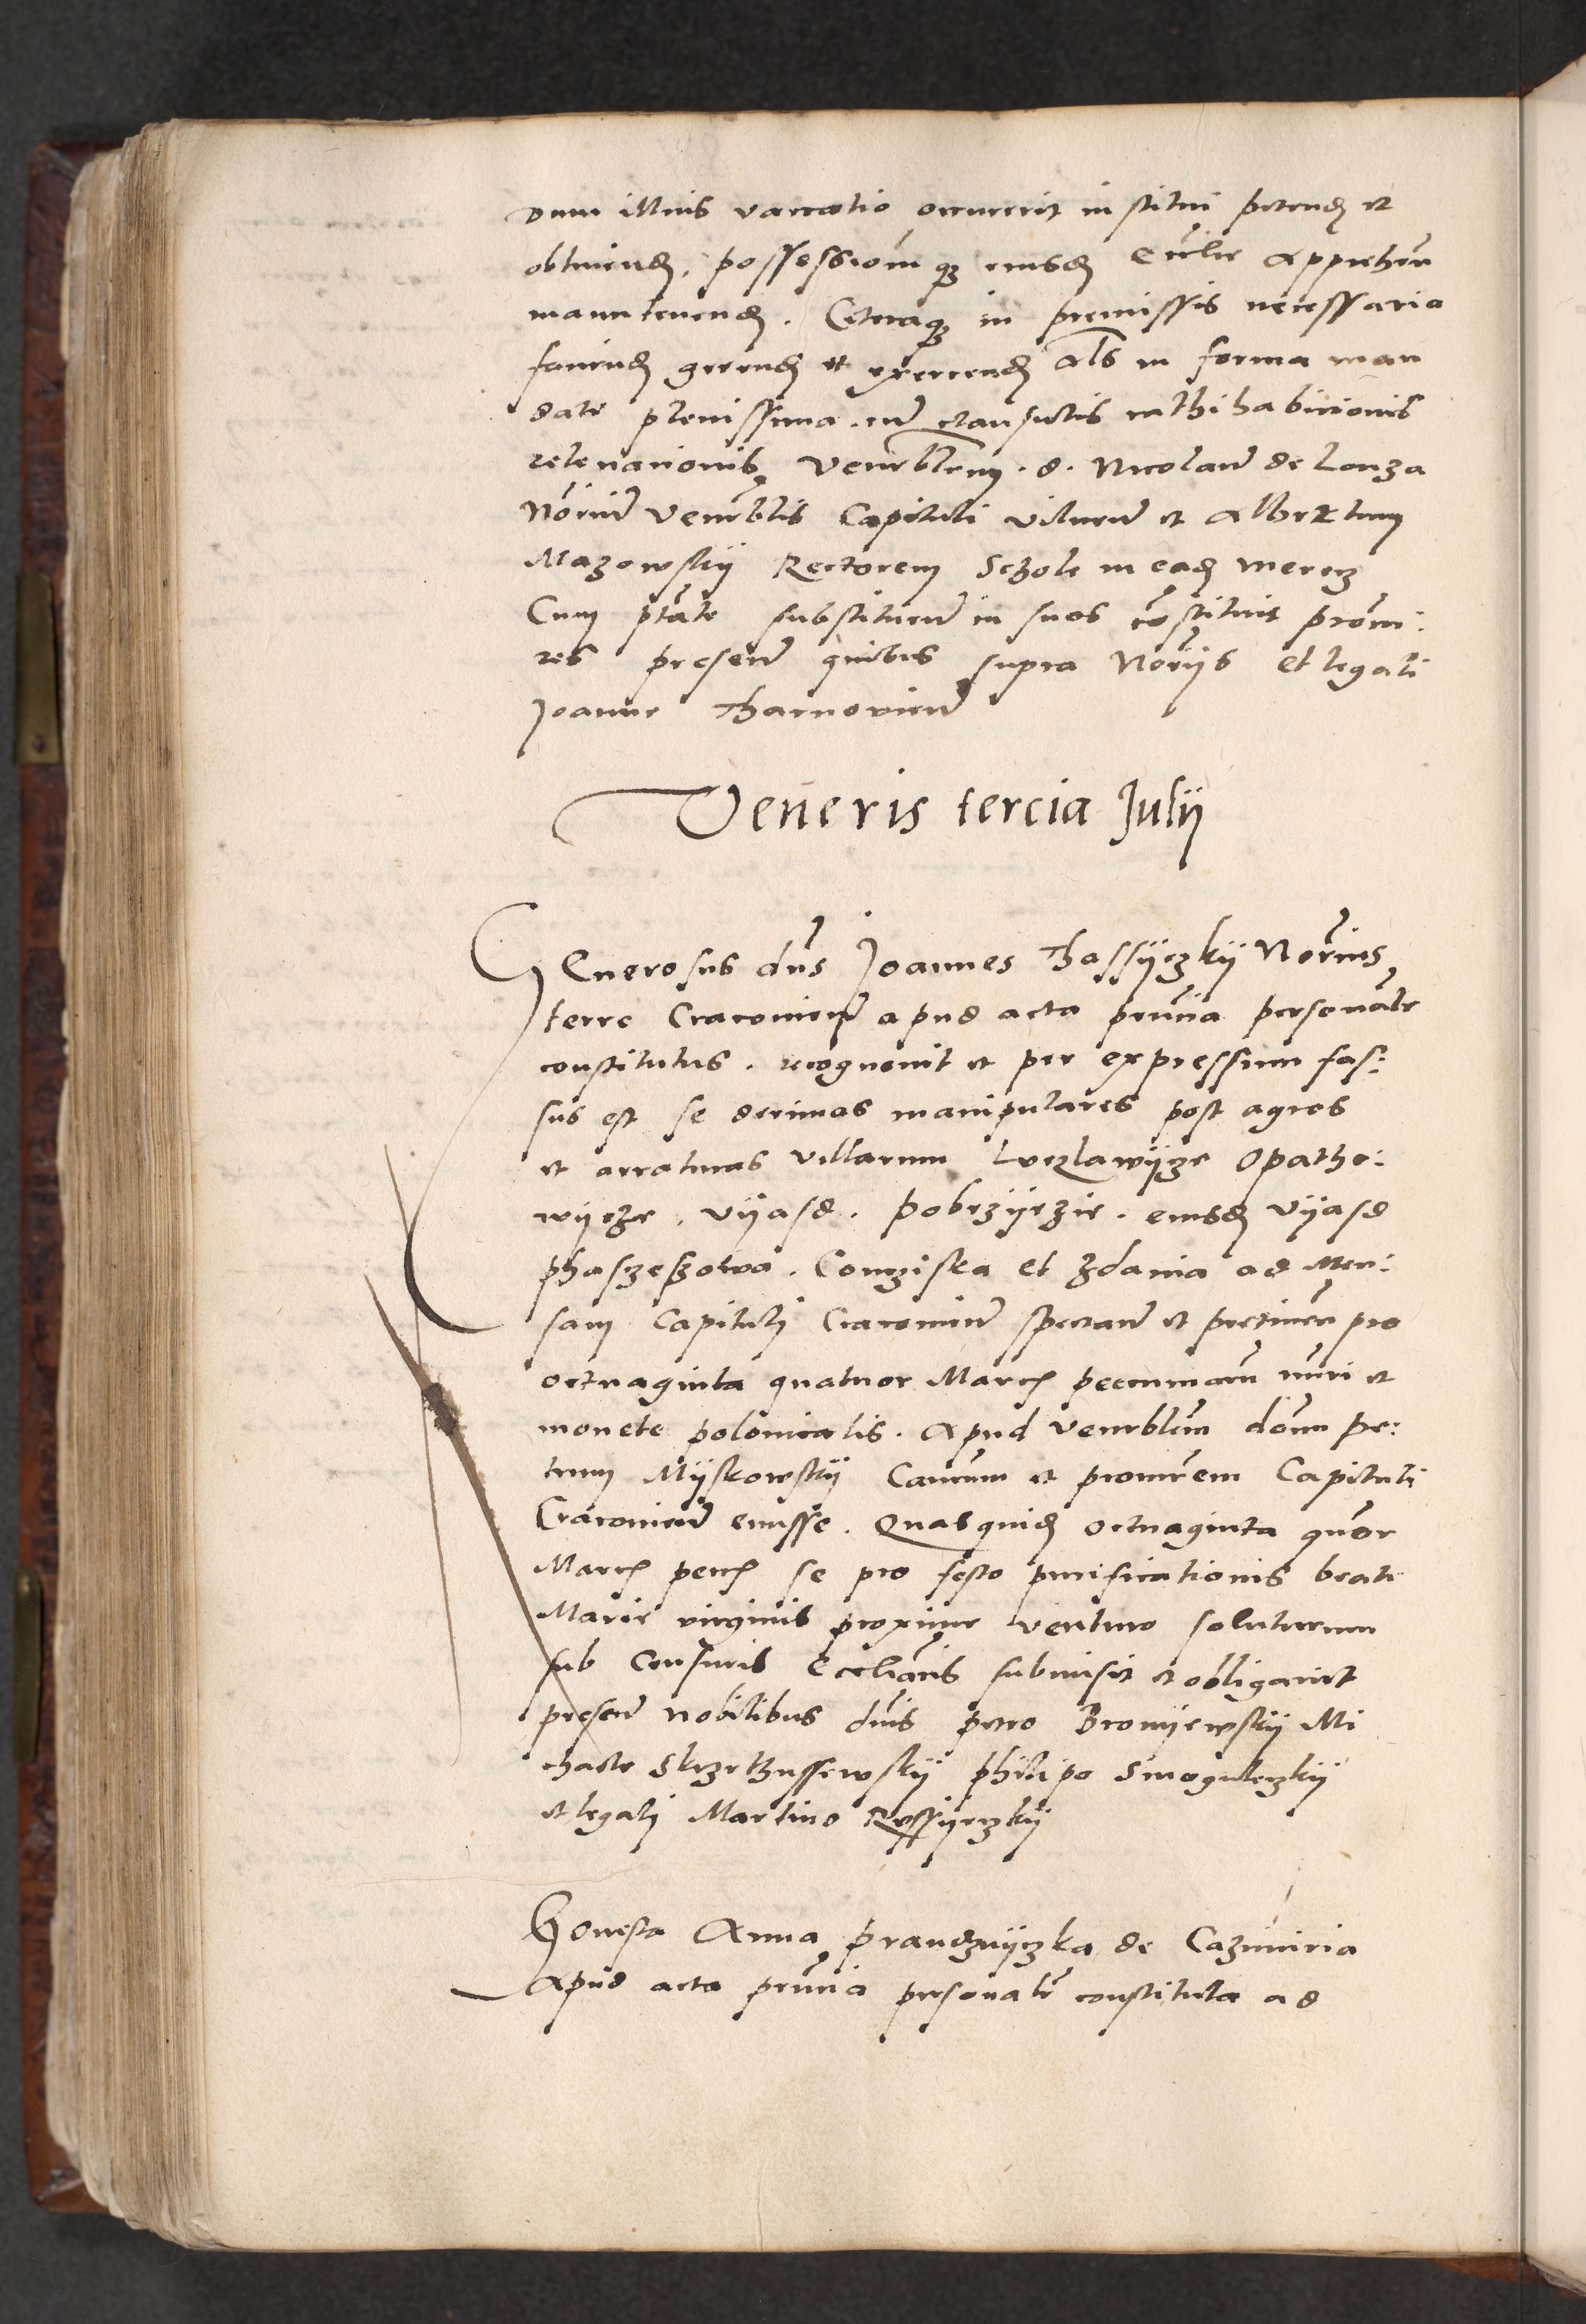 dum illius vaccatio occurrerit institui petend et
obtinend. possessionem q eiusd Eccle Apprehen
manutenend. Ceteraq in premissis necessaria
faciend gerend et exercend als in forma man
dati plenissima. cu clausulis rathihabicionis
relevacionis, Venerblem. d. Nicolau de Lonza
Noriu Venerblis Capituli vilnen et Albertum
Mazowskij Rectorem Schole in ead
Cum ptate substituen in suos costituit procui:
res presen quibus supra Norijs et legali
Joanne Tharnovien
Veneris tercia Julij
GEnerosus dns Joannes Thassijczkij Norius
terre Cracovien apud acta pruncia personalr
constitutus. recognovit et per expressum fas:
sus est se decimas manipulares post agros
et arraturas villarum Luczlawijcze Opatho:
wijcze. Uijasd. Pobrzijezie. eiusd Uijasd
 et Zdania ad Men:
sam Capituli Cracovien spectan et pertinen pro
octuaginta quatuor March peccuniaru nuri et
monete polonicalis. Apud venerblem donu Pe:
trum Mijskowskij Cancum et procurem Capituli
Cracovien emisse. Quasquid octuaginta quor
March pecch se pro festo purificationis beate
Marie virginis proxime venturo soluturum
sub Censuris Eccliacis submisit et obligavit
presen nobilibus dnis petro Bronijewskij Mi
chaele Skrzethussewskij philipo Smoguleczkij
et legali Martino
Honesta Anna de Cazimiria
Apud acta pruncia personalr constituta ad